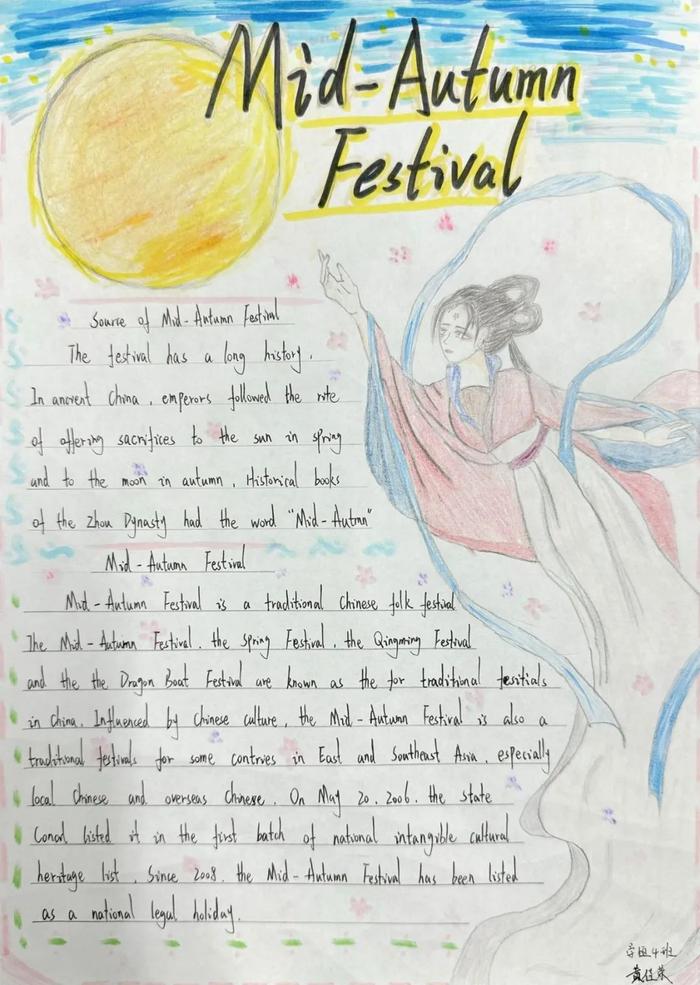 Mid-Autumn
Festival
Source of Mid-Autumn Festival
The festival has a long history.
In ancient China, emperors followed the rite
of offering sacrifices to the sun in spring
and to the moon in autumn. Historical books
of the Zhou Dynasty had the word "Mid-Autmn"
Mid-Autumn Festival
Mid-Autumn Festival is a traditional Chinese folk festival
The Mid-Autumn Festival, the Spring Festival, the Qingming Festival
and the the Dragon Boat Festival are known as the for traditional fesitials
in China. Influenced by Chinese culture, the Mid-Autumn Festival is also a
traditional festivals for some contries in East and Southeast Asia, especially
local Chinese and overseas Chinese. On May 20, 2006, the state
listed it in the first batch of national intangible cultural
heritage list. Since 2008, the Mid-Autumn Festival has been listed
as a national legal holiday.
4班